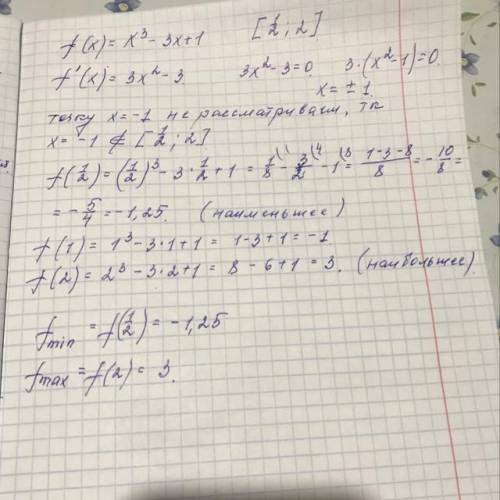 f(x) = x³ - 3x + 1 [1/2; 2]
f'(x) = 3x² - 3. 3x² - 3 = 0. 3·(x² - 1) = 0.
x = ± 1.
точку x = -1 не рассматриваем, тк
x = -1 ∉ [1/2; 2]
f(1/2) = (1/2)³ - 3·1/2 + 1 = 1/8 - 3/2 - 1 = (1-3-8)/8 = -10/8 =
= -5/4 = -1,25. (наименьшее)
f(1) = 1³ - 3·1 + 1 = 1-3+1 = -1
f(2) = 2³ - 3·2 + 1 = 8 - 6 + 1 = 3. (наибольшее).
fmin = f(1/2) = -1,25
fmax = f(2) = 3.